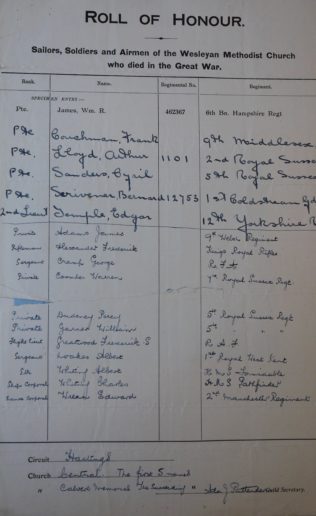 ROLL OF HONOUR.
Sailors, Soldiers and Airmen of the Wesleyan Methodist Church
who died in the Great War.
Rank. Name. Regimental No. Regiment.
SPECIMEN ENTRY:—
Pte. James, Wm. R. 462367 6th Bn. Hampshire Regt
Pte. Couchman, Frank 9th Middlesex
Pte. Lloyd, Arthur 1101 2nd Royal Susse
Pte. Sanders, Cyril 5th Royal Susse
Pte. Scrivener Bernard 12753 1st Coldstream Gd
2nd Lieut Temple, Edgar 12th Yorkshire R
Private Adams James 9th Welsh Regiment
Rifleman Alexander Frederick Kings Royal Rifles
Sergeant Cramp George R.F.A
Private Coomber Warren 7th Royal Sussex Regt.
Private Percy 5th Royal Sussex Regt
Private James William 5th " "
Flight Lieut Frederick S R.A.F
Sergeant Albert 1st Royal West Kent
Whiting Albert H.M.S Formidable
Whiting Charles H.M.S Pathfinder
Lance Corporal Edward 2nd Manchester Regiment
Circuit Hastings
Church Central. The first 5 names
" Calvert Memorial The " Secretary.